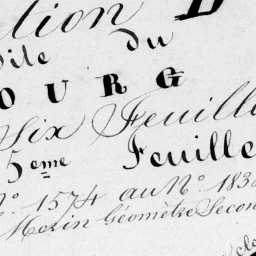 tion D
oile du
OURG
Six Feuill
5eme Feuille
N° 1574 au N° 183
Morin Géomètre Secon